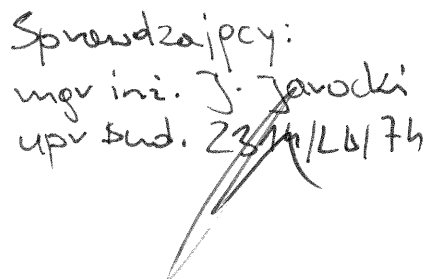 Sprawdzający:
mgr inż. J. Jarocki
upr bud.